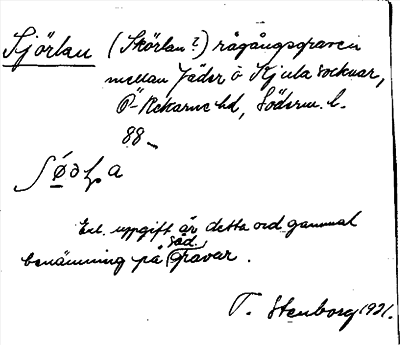 Kjörlan (Skörlan?) rågångsgraven
mellan Jäder o Kjula socknar,
Ö-Rekarne hd, Söderm. l.
88
Enl. uppgift är detta ord gammal
benämning på såd. gravar.
T. Stenborg 1921.